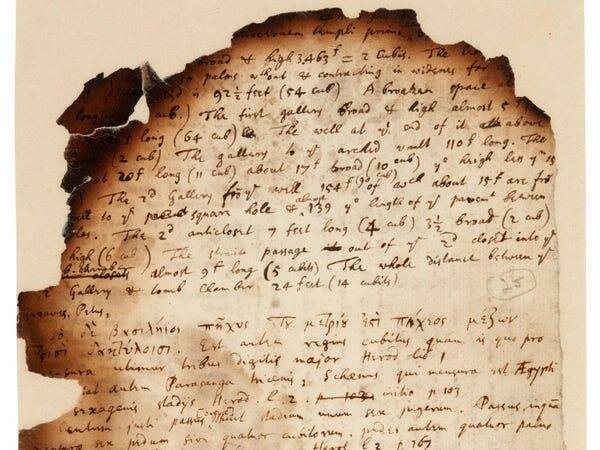 templi prima,
broad & high 3,463 f = 2 cubits. The
palms without & contracting in widenes for
is 92½ feet (54 cub) A broaken space
cub.) The first gallery broad & high almost 5
long (64 cub) The well at yᵉ end of it above
(2 cub) The gallery to yᵉ arched vault 110 f long. The
20 f long (11 cub) about 17 f broad (10 cub) yᵉ heigh less yⁿ 15
The 2d Gallery frō yᵉ well 154 f (90 cub) of wch about 15 f are frō
to yᵉ square hole & almost 139 yᵉ length of yᵉ pavemt between
The 2d anticloset 7 feet long (4 cub) 3½ broad (2 cub)
high (6 cub) The strait passage out of yᵉ 2d closet into yᵉ
almost 9 f long (5 cubits) The whole distance between yᵉ
2 Gallery & tomb chamber 24 feet (14 cubits)
25
greaves, Petus,
δὲ βασιλήϊος πῆχυς τοῦ μετρίου ἐστὶ πήχεος μέζων
τρισὶ δακτύλοισι. Est autem regius cubitus quam is quo pro
utimur tribus digitis major Herod. lib 1
autem Parasanga tricenis; Schœnus, qui mensura est Ægypti
sexagenis stadijs Herod. l. 2. initio p 103
justi passus stadium unum sex jugerum. Passus
sex pedum sive quatuor cubitorum. pedes autem quatuor palmo
Herod l 2 p. 167